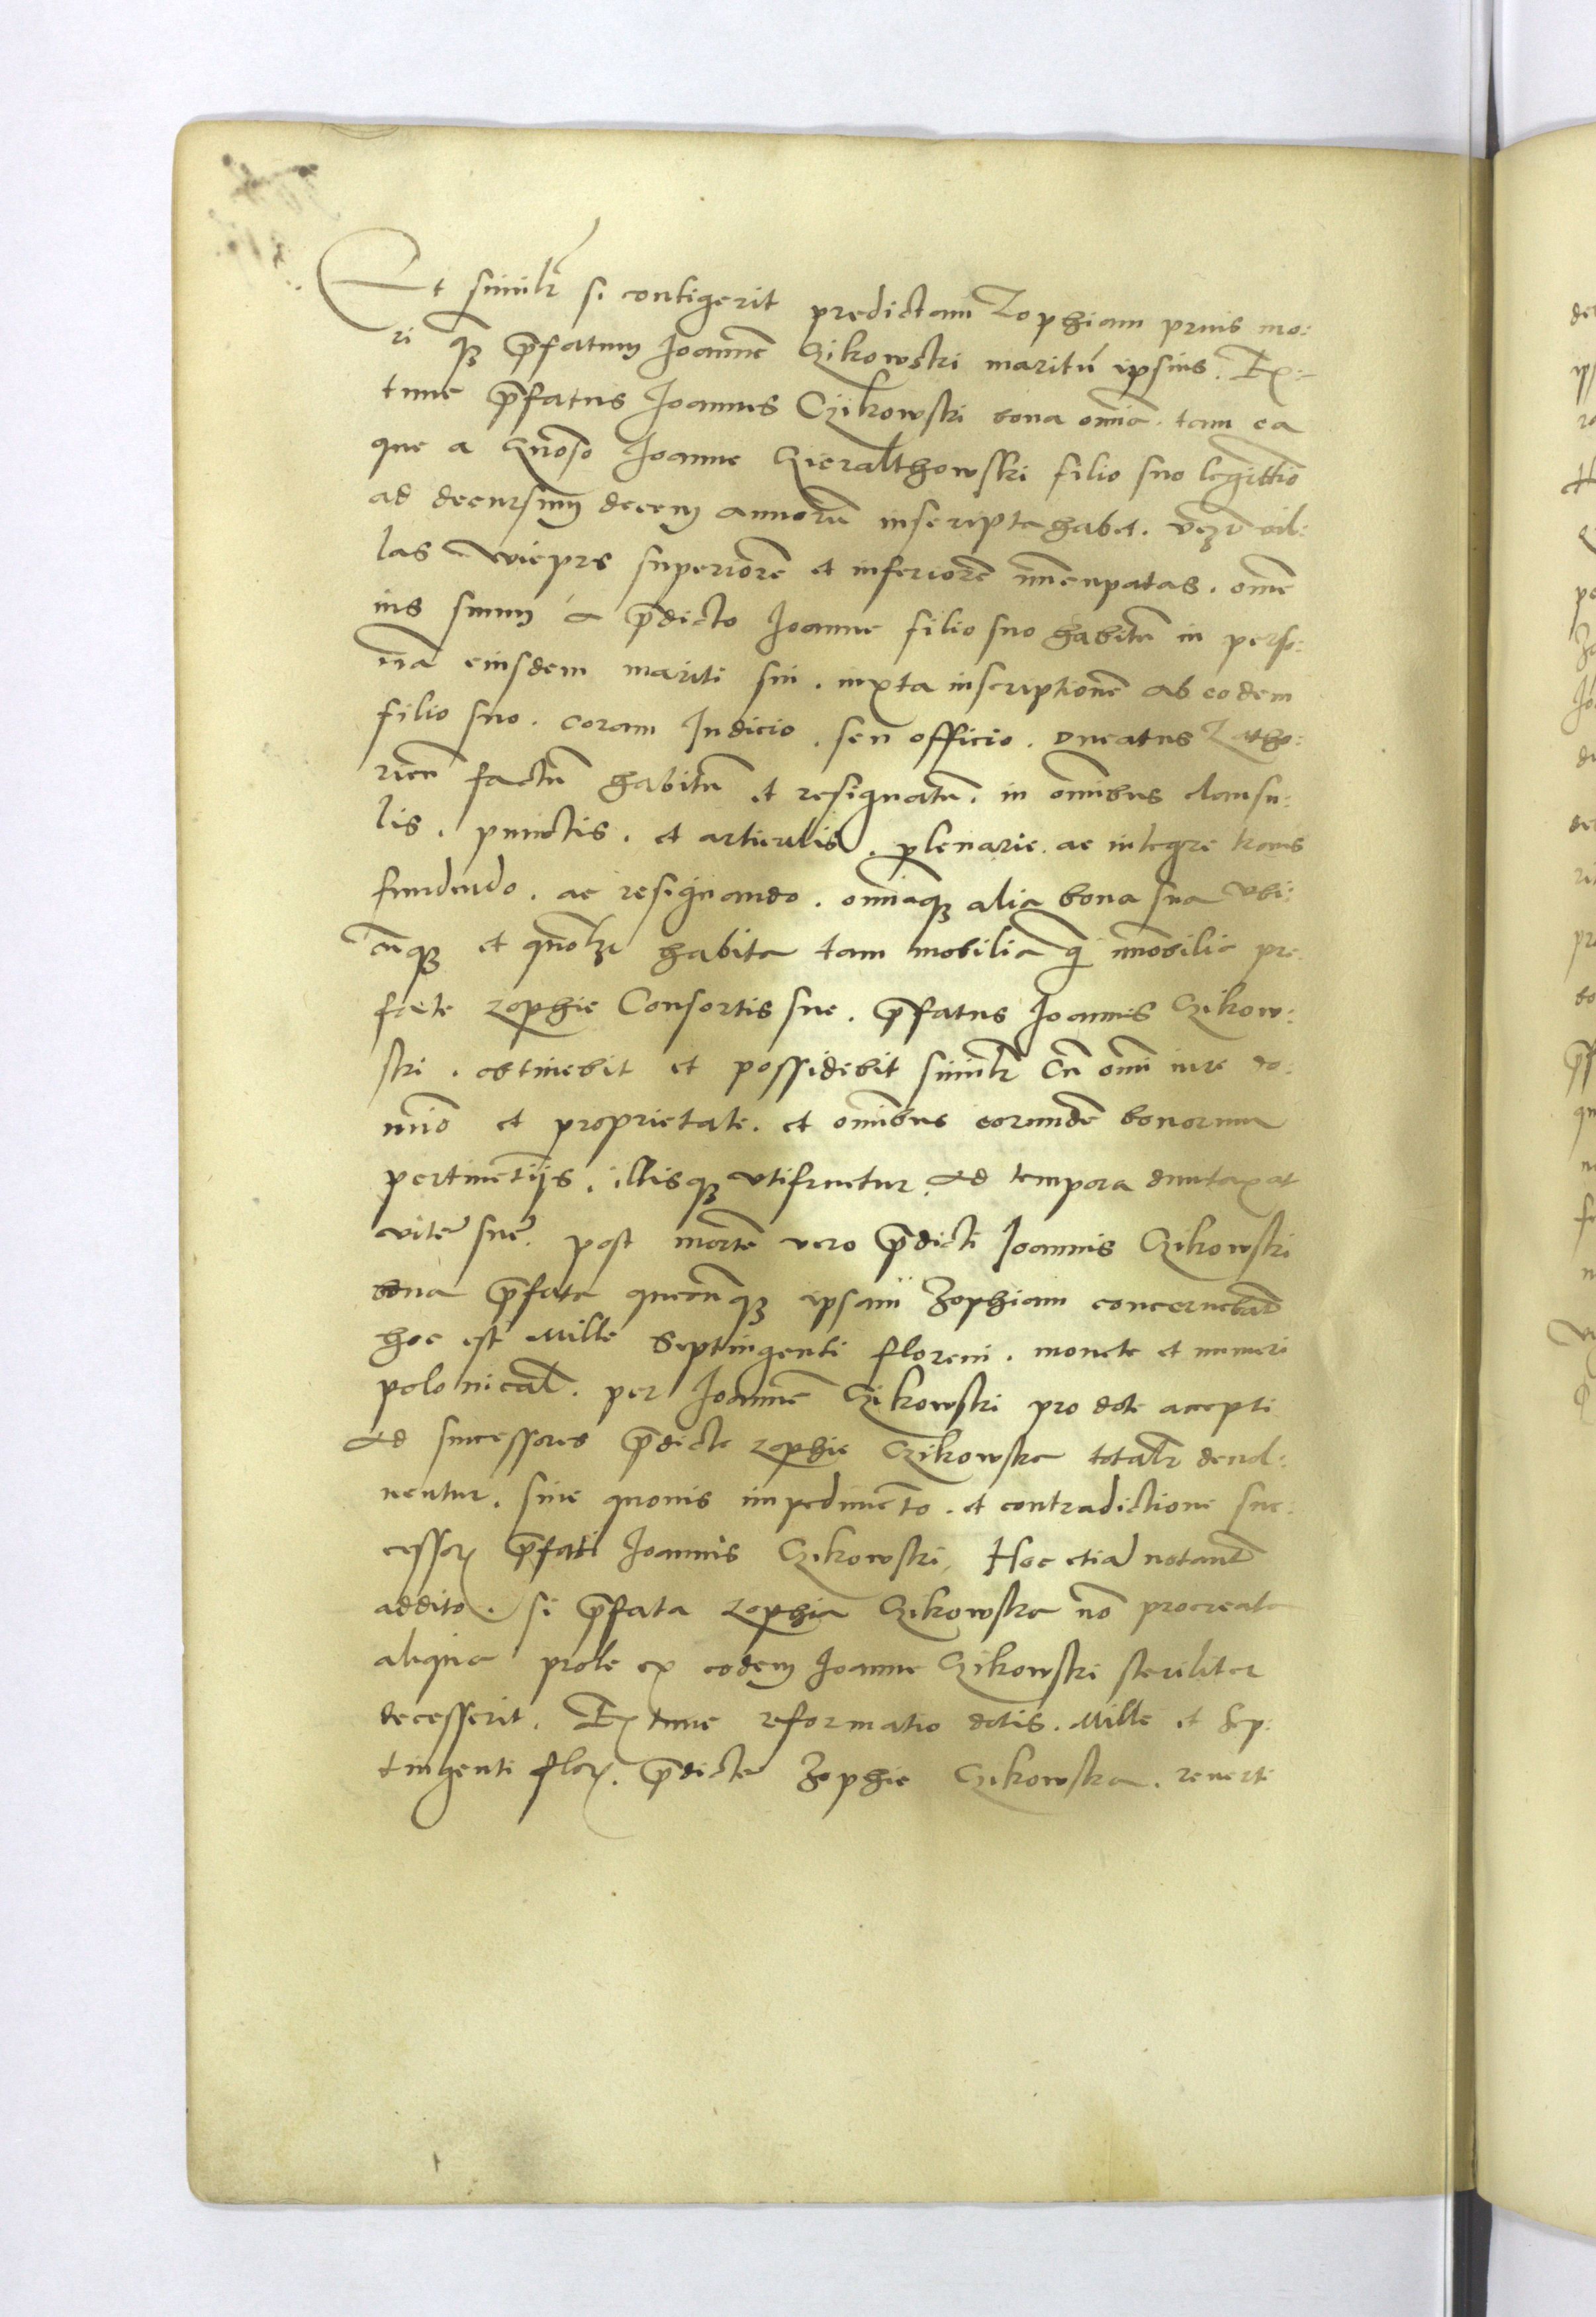 Et similr̃ si contigerit predictam Zophiam prius mo:
ri q̃ꝫ p̃fatum Joannẽ Czikowski maritũ ipsius. Ex:
tunc p̃fatus Joannes Czikowski bona om̃ia tam ea
que a Gñoso Joanne Gieralthowski filio suo legittĩo
ad decursum decem annorũ inscripta habet. vcꝫ vil:
las Wieprz superiorẽ et inferiorẽ nũcupatas. om̃e
ius suum a p̃dicto Joanne filio suo habitũ in perso:
nã eiusdem mariti sui. iuxta inscriptionẽ ab eodem
filio suo. coram Judicio. seu officio. Ducatus Zatho:
rien̄ factũ habitũ et resignatũ. in om̃ibus clausu:
lis. punctis. et articulis. plenarie. ac integre trans
fundendo. ac resignando. om̃iaqꝫ alia bona sua vbi:
cũqꝫ et quõlꝫ habita tam mobilia q̃ im̃obilia pre:
fate Zophie Consortis sue. p̃fatus Joannes Czikow:
ski. obtinebit et possidebit similr̃ cũ om̃i iure do:
mĩo et proprietate. et om̃ibus eorundẽ bonorum
pertinẽtijs. illisqꝫ vtifruetur ad tempora duntaxat
vite sue. post mortẽ vero p̃dicti Joannis Czikowski
bona p̃fata quecũqꝫ ipsam Zophiam concernebãt
hoc est Mille Septingenti floreni. monete et numeri
polonical̃. per Joannẽ Czikowski pro dote accepti
ad successores p̃dicte Zophie Czikowska totalr̃ deuol:
uentur. sine quouis impedimẽto. et contradictione suc:
cessoꝝ p̃fati Joannis Czikowski. Hoc etiã notant̃
addito. si p̃fata Zophia Czikowska nõ procreata
aliqua prole ex eodem Joanne Czikowski steriliter
decesserit. Ex tunc reformatio dotis. Mille et Sep:
tingenti floꝝ. p̃dicte Zophie Czikowska. reuerti